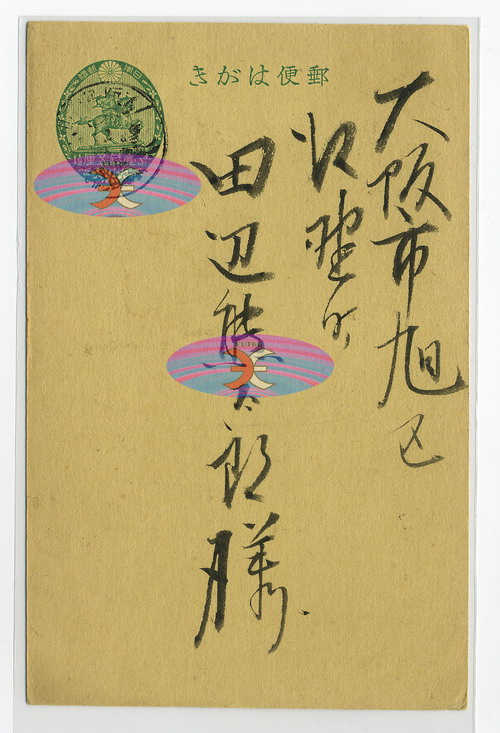 きがは便郵
大阪市旭区
田辺熊太郎様